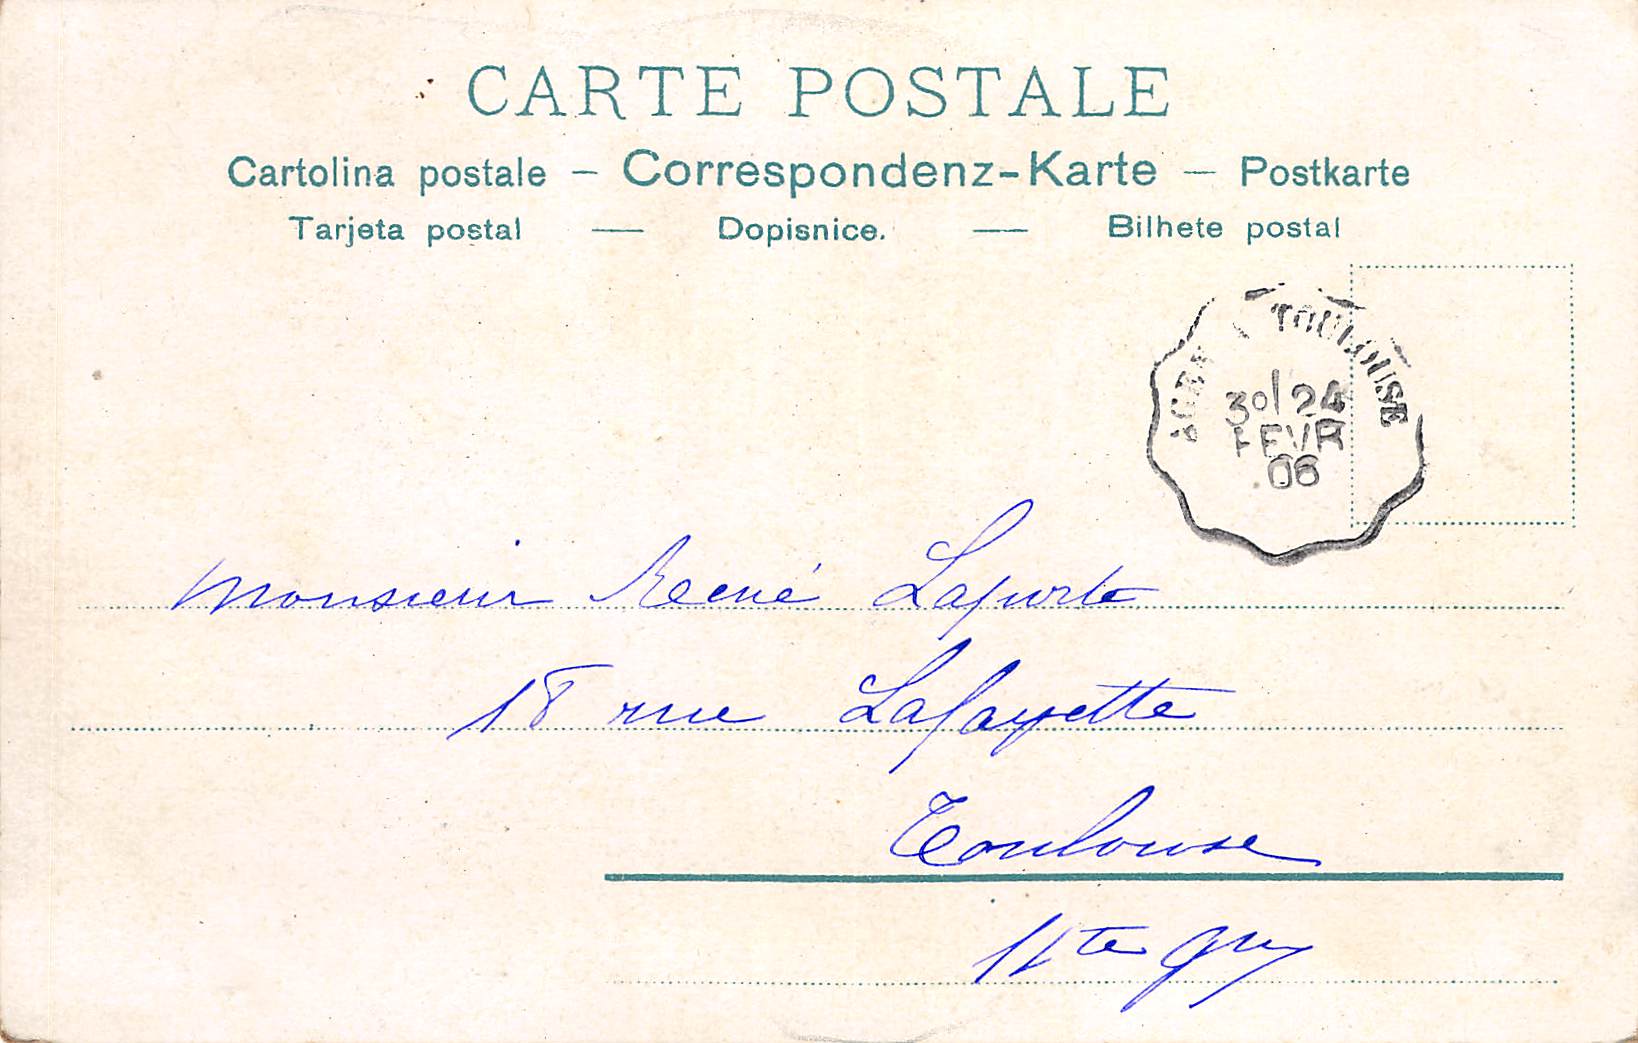 CARTE POSTALE
Cartolina postale – Correspondenz-Karte – Postkarte
Tarjeta postal — Dopisnice. — Bilhete postal
TOULOUSE
30/24
FEVR
06
Monsieur René Laporte
18 rue Lafayette
Toulouse
Hte